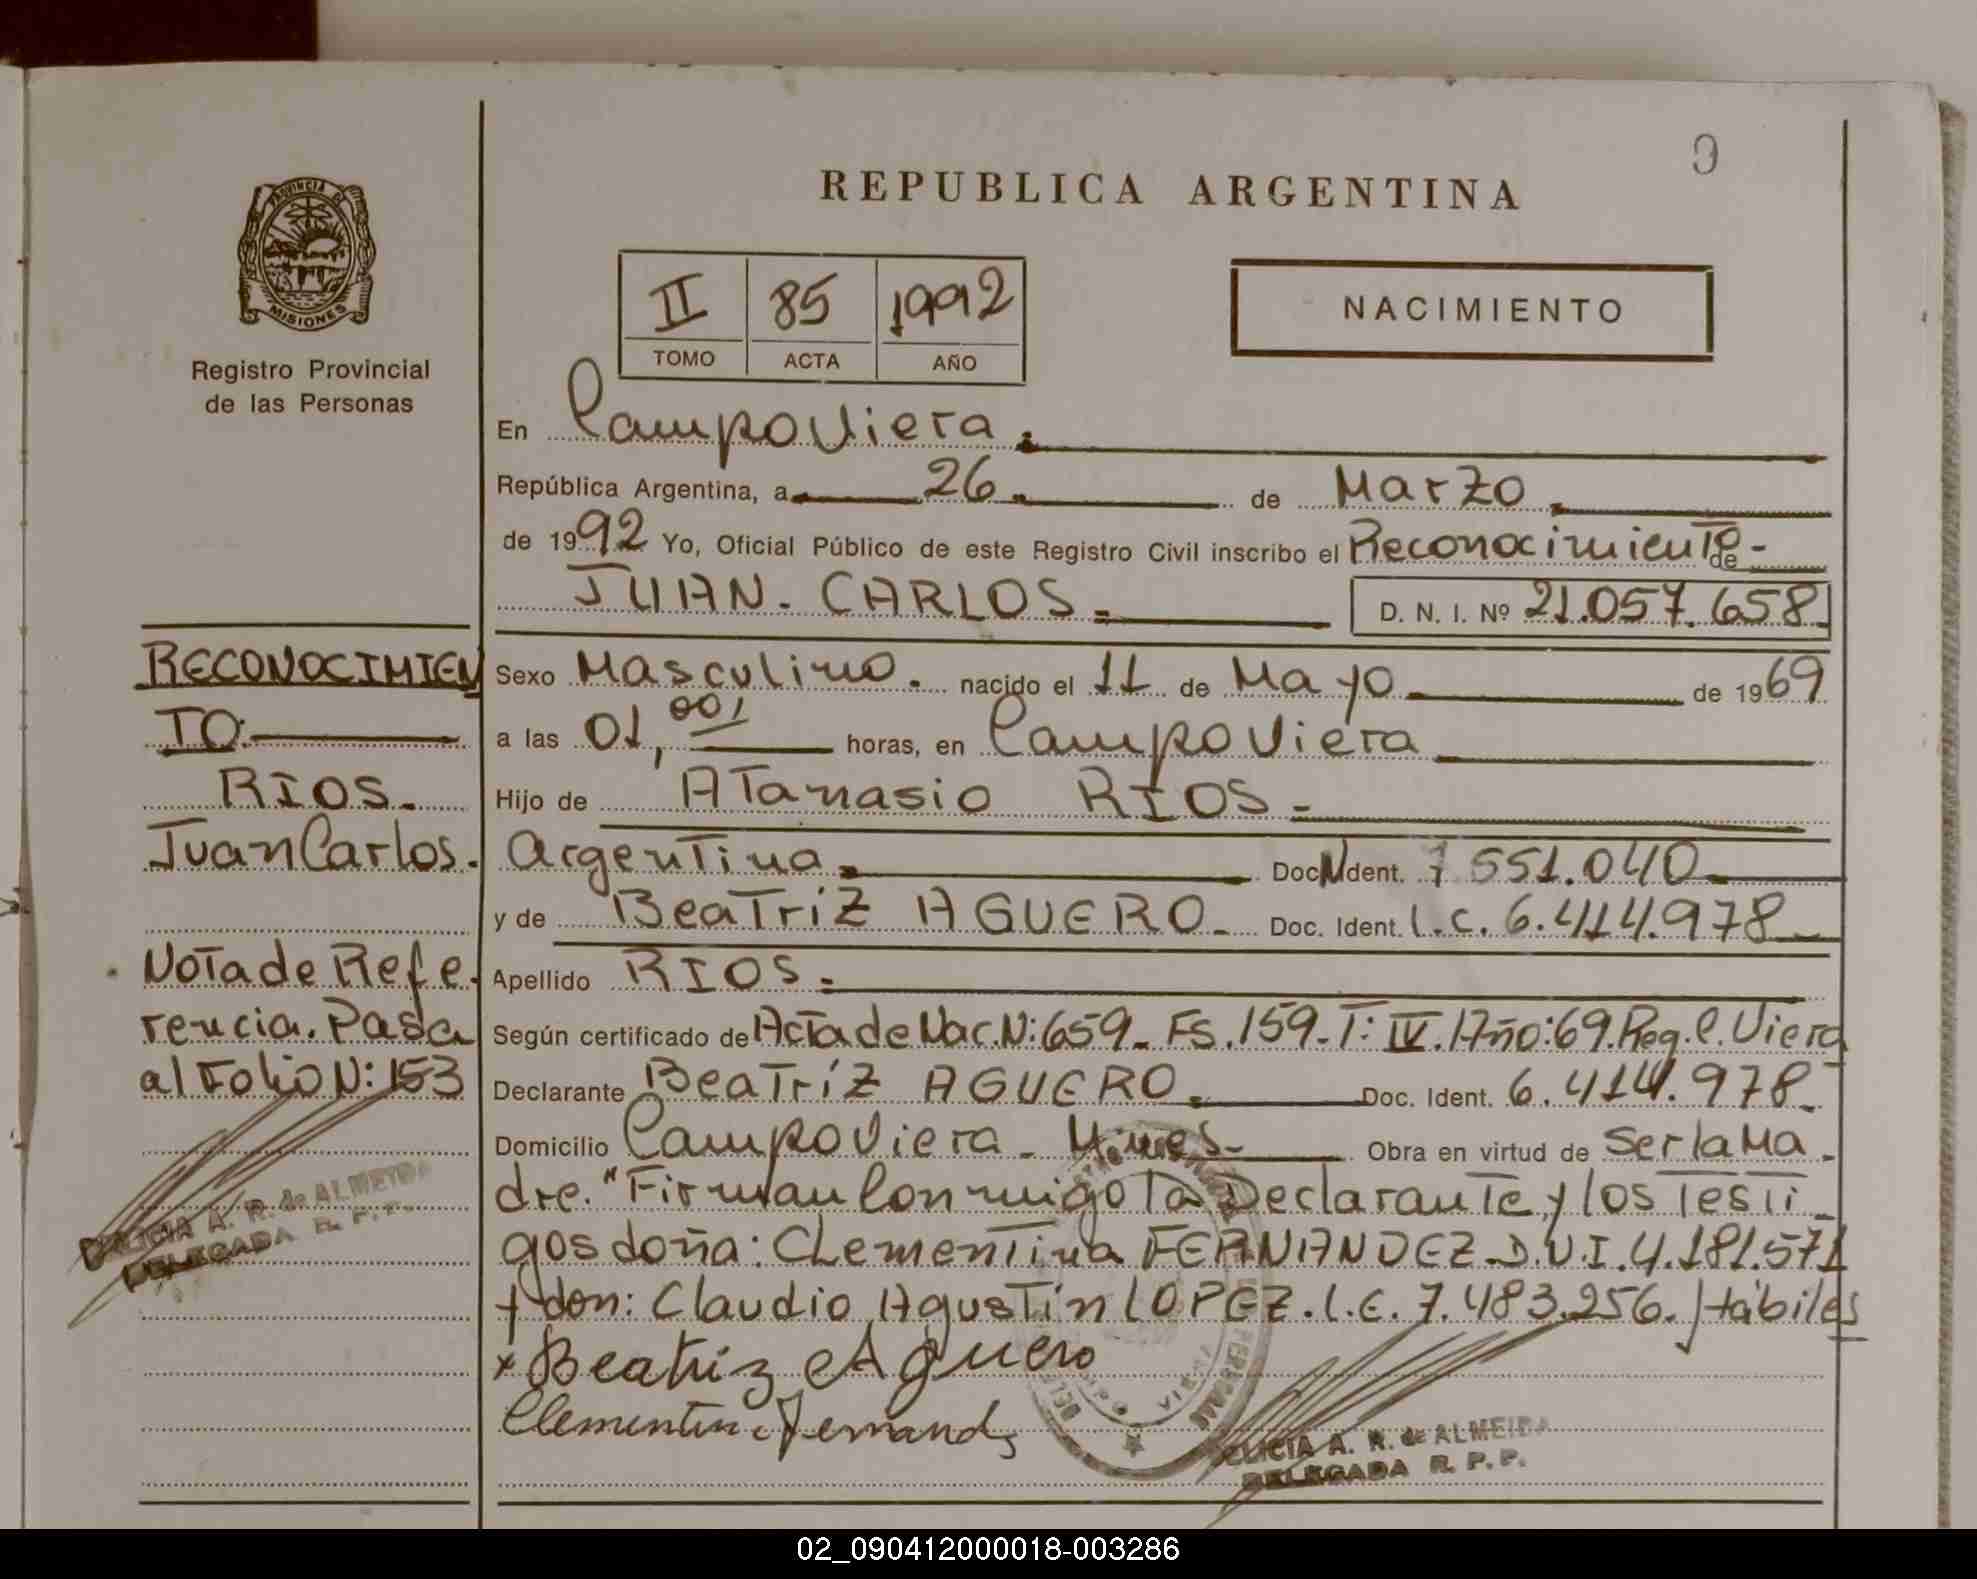 REPUBLICA ARGENTINA
PROVINCIA DE
MISIONES
Registro Provincial
de las Personas
II 85 1992
TOMO ACTA AÑO
NACIMIENTO
En Campo Viera.
República Argentina, a 26 de Marzo
de 1992 Yo, Oficial Público de este Registro Civil inscribo el Reconocimiento de
JUAN. CARLOS. D. N. I. Nº 21.057.658
Sexo Masculino. nacido el 11 de Mayo de 1969
a las 01,00 horas, en Campo Viera
Hijo de Atanasio RIOS.
Argentina. Doc. Ident. 7 551.040
y de Beatríz AGUERO. Doc. Ident. L.C. 6.414.978
Apellido RIOS.
Según certificado de Acta de Nac.N:659. Fs.159-T:IV.Año:69.Reg.C.Viera
Declarante Beatríz AGUERO. Doc. Ident. 6.414.978
Domicilio Campo Viera. Mnes- Obra en virtud de Ser la Ma-
dre. "Firman Conmigo la Declarante y los Testi-
gos doña: Clementina FERNANDEZ D.N.I.4.181.571
y don: Claudio Agustín LOPEZ.L.E.7.483.256.Hábiles
x Beatriz Aguero
Clementina Fernandez
DELICIA A. R. de ALMEIDA
DELEGADA R. P. P.
RECONOCIMIEN
TO:
RIOS.
Juan Carlos.
Nota de Refe-
rencia. Pasa
al Folio N:153
DELICIA A. R. de ALMEIDA
DELEGADA R. P. P.
02_090412000018-003286